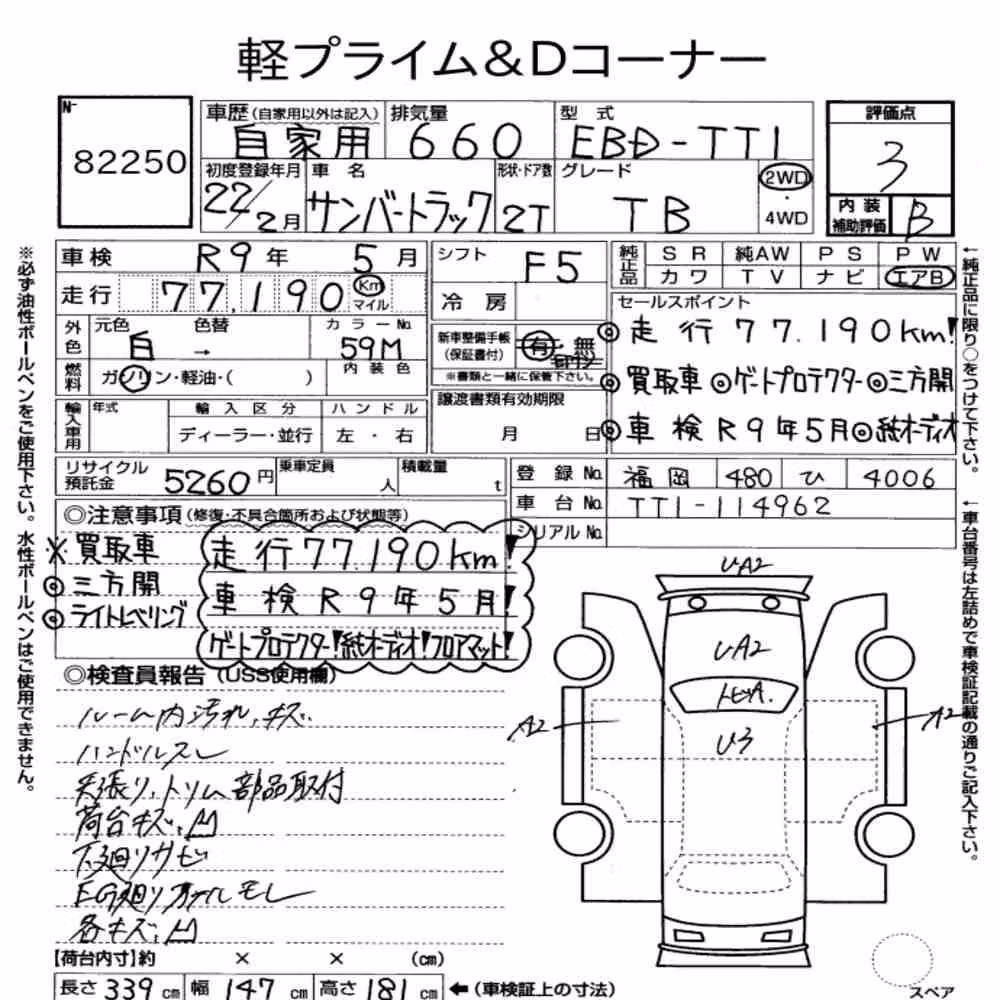 軽プライム&Dコーナー
№ 82250
車歴(自家用以外は記入) 自家用
排気量 660
型式 EBD-TT1
評価点 3
初度登録年月 22/2月
車名 サンバートラック
形状・ドア数 2T
グレード TB
2WD・4WD
内装補助評価 B
車検 R9年5月
シフト F5
純正品 SR 純AW PS PW
カワ TV ナビ エアB
走行 77,190 Km マイル
冷房
セールスポイント
◎走行77.190Km!
◎買取車◎ゲートプロテクター◎三方開
◎車検R9年5月◎純オーディオ
外色 元色 白 → 色替
カラーNo. 59M
新車整備手帳(保証書付) 有・無
※書類と一緒に保管下さい。
燃料 ガソリン・軽油・( )
内装色
譲渡書類有効期限 月 日
輸入車用 年式
輸入区分 ディーラー・並行
ハンドル 左・右
リサイクル預託金 5260円
乗車定員 人
積載量 t
登録No. 福岡 480 ひ 4006
車台No. TT1-114962
シリアルNo.
◎注意事項(修復・不具合箇所および状態等)
※買取車
◎三方開
◎ライトレベリング
走行77.190Km!
車検R9年5月!
ゲートプロテクター!純オーディオ!フロアマット!
◎検査員報告(USS使用欄)
ルーム内汚れ、キズ
ハンドルスレ
天張り、トリム部品取付
荷台キズ、凹
下廻りサビ
EG廻りオイルモレ
各キズ、凹
【荷台内寸】約 × × (cm)
長さ 339 cm 幅 147 cm 高さ 181 cm ←(車検証上の寸法)
UA2
UA2
A2
U3
A2
スペア
※必ず油性ボールペンをご使用下さい。水性ボールペンはご使用できません。
←純正品に限り○をつけて下さい。
←車台番号は左詰めで車検証記載の通りご記入下さい。